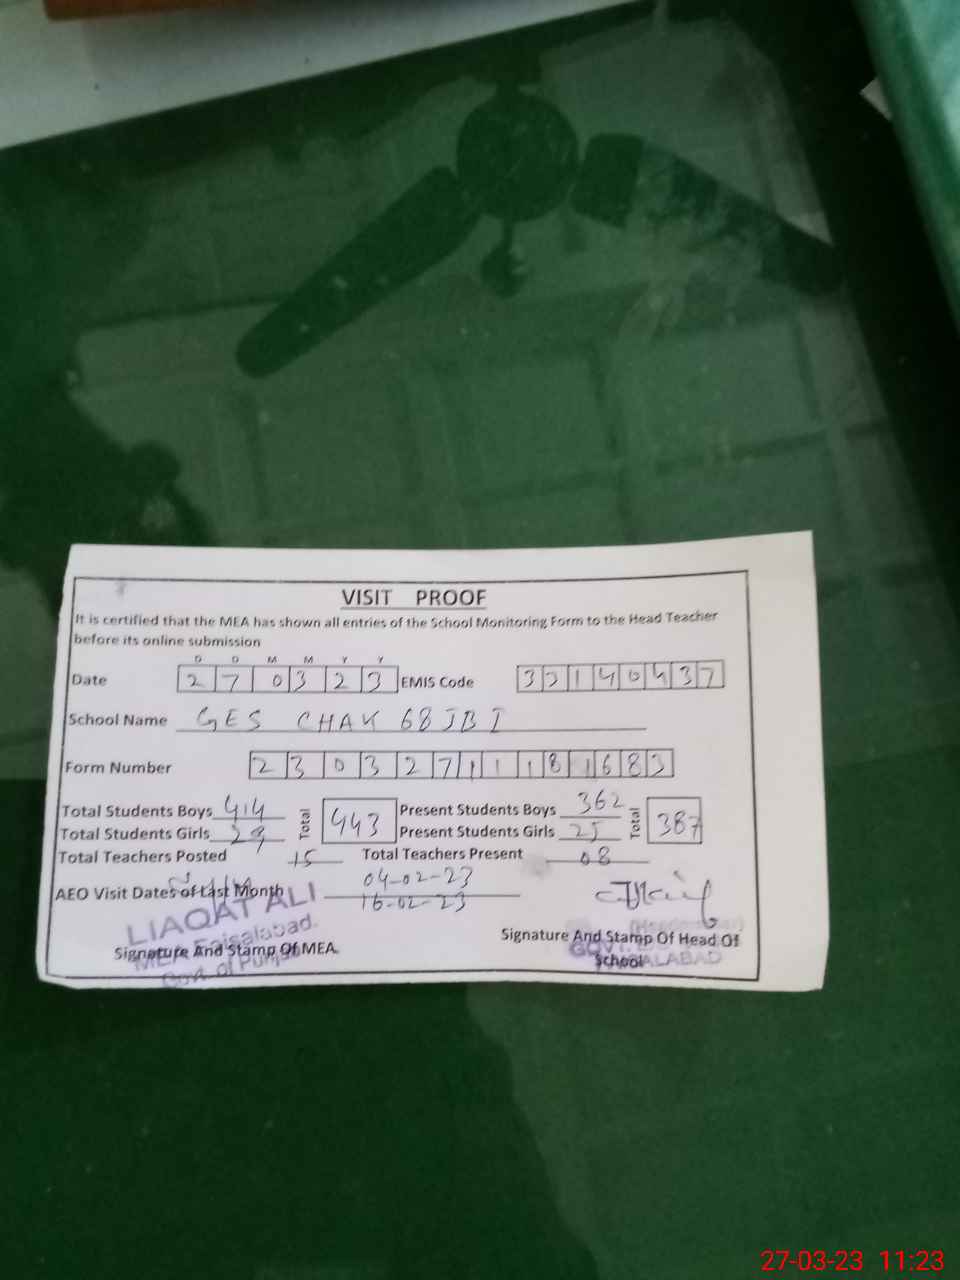 VISIT PROOF
It is certified that the MEA has shown all entries of the School Monitoring Form to the Head Teacher
before its online submission
D D M M Y Y
Date 2 7 0 3 2 3 EMIS Code
School Name GES CHAK 68 JB I
Form Number 2 3 0 3 2 7 1 1 1 8 1 6 8 3
Total Students Boys 414 Total 443 Present Students Boys 362 Total 387
Total Students Girls 29 Present Students Girls 25
Total Teachers Posted 15 Total Teachers Present 08
AEO Visit Dates of Last Month 04-02-23
16-02-23
LIAQAT ALI
MEA Faisalabad.
Govt. of Punjab
Signature And Stamp Of MEA.
Signature And Stamp Of Head Of
School
FAISALABAD
27-03-23 11:23